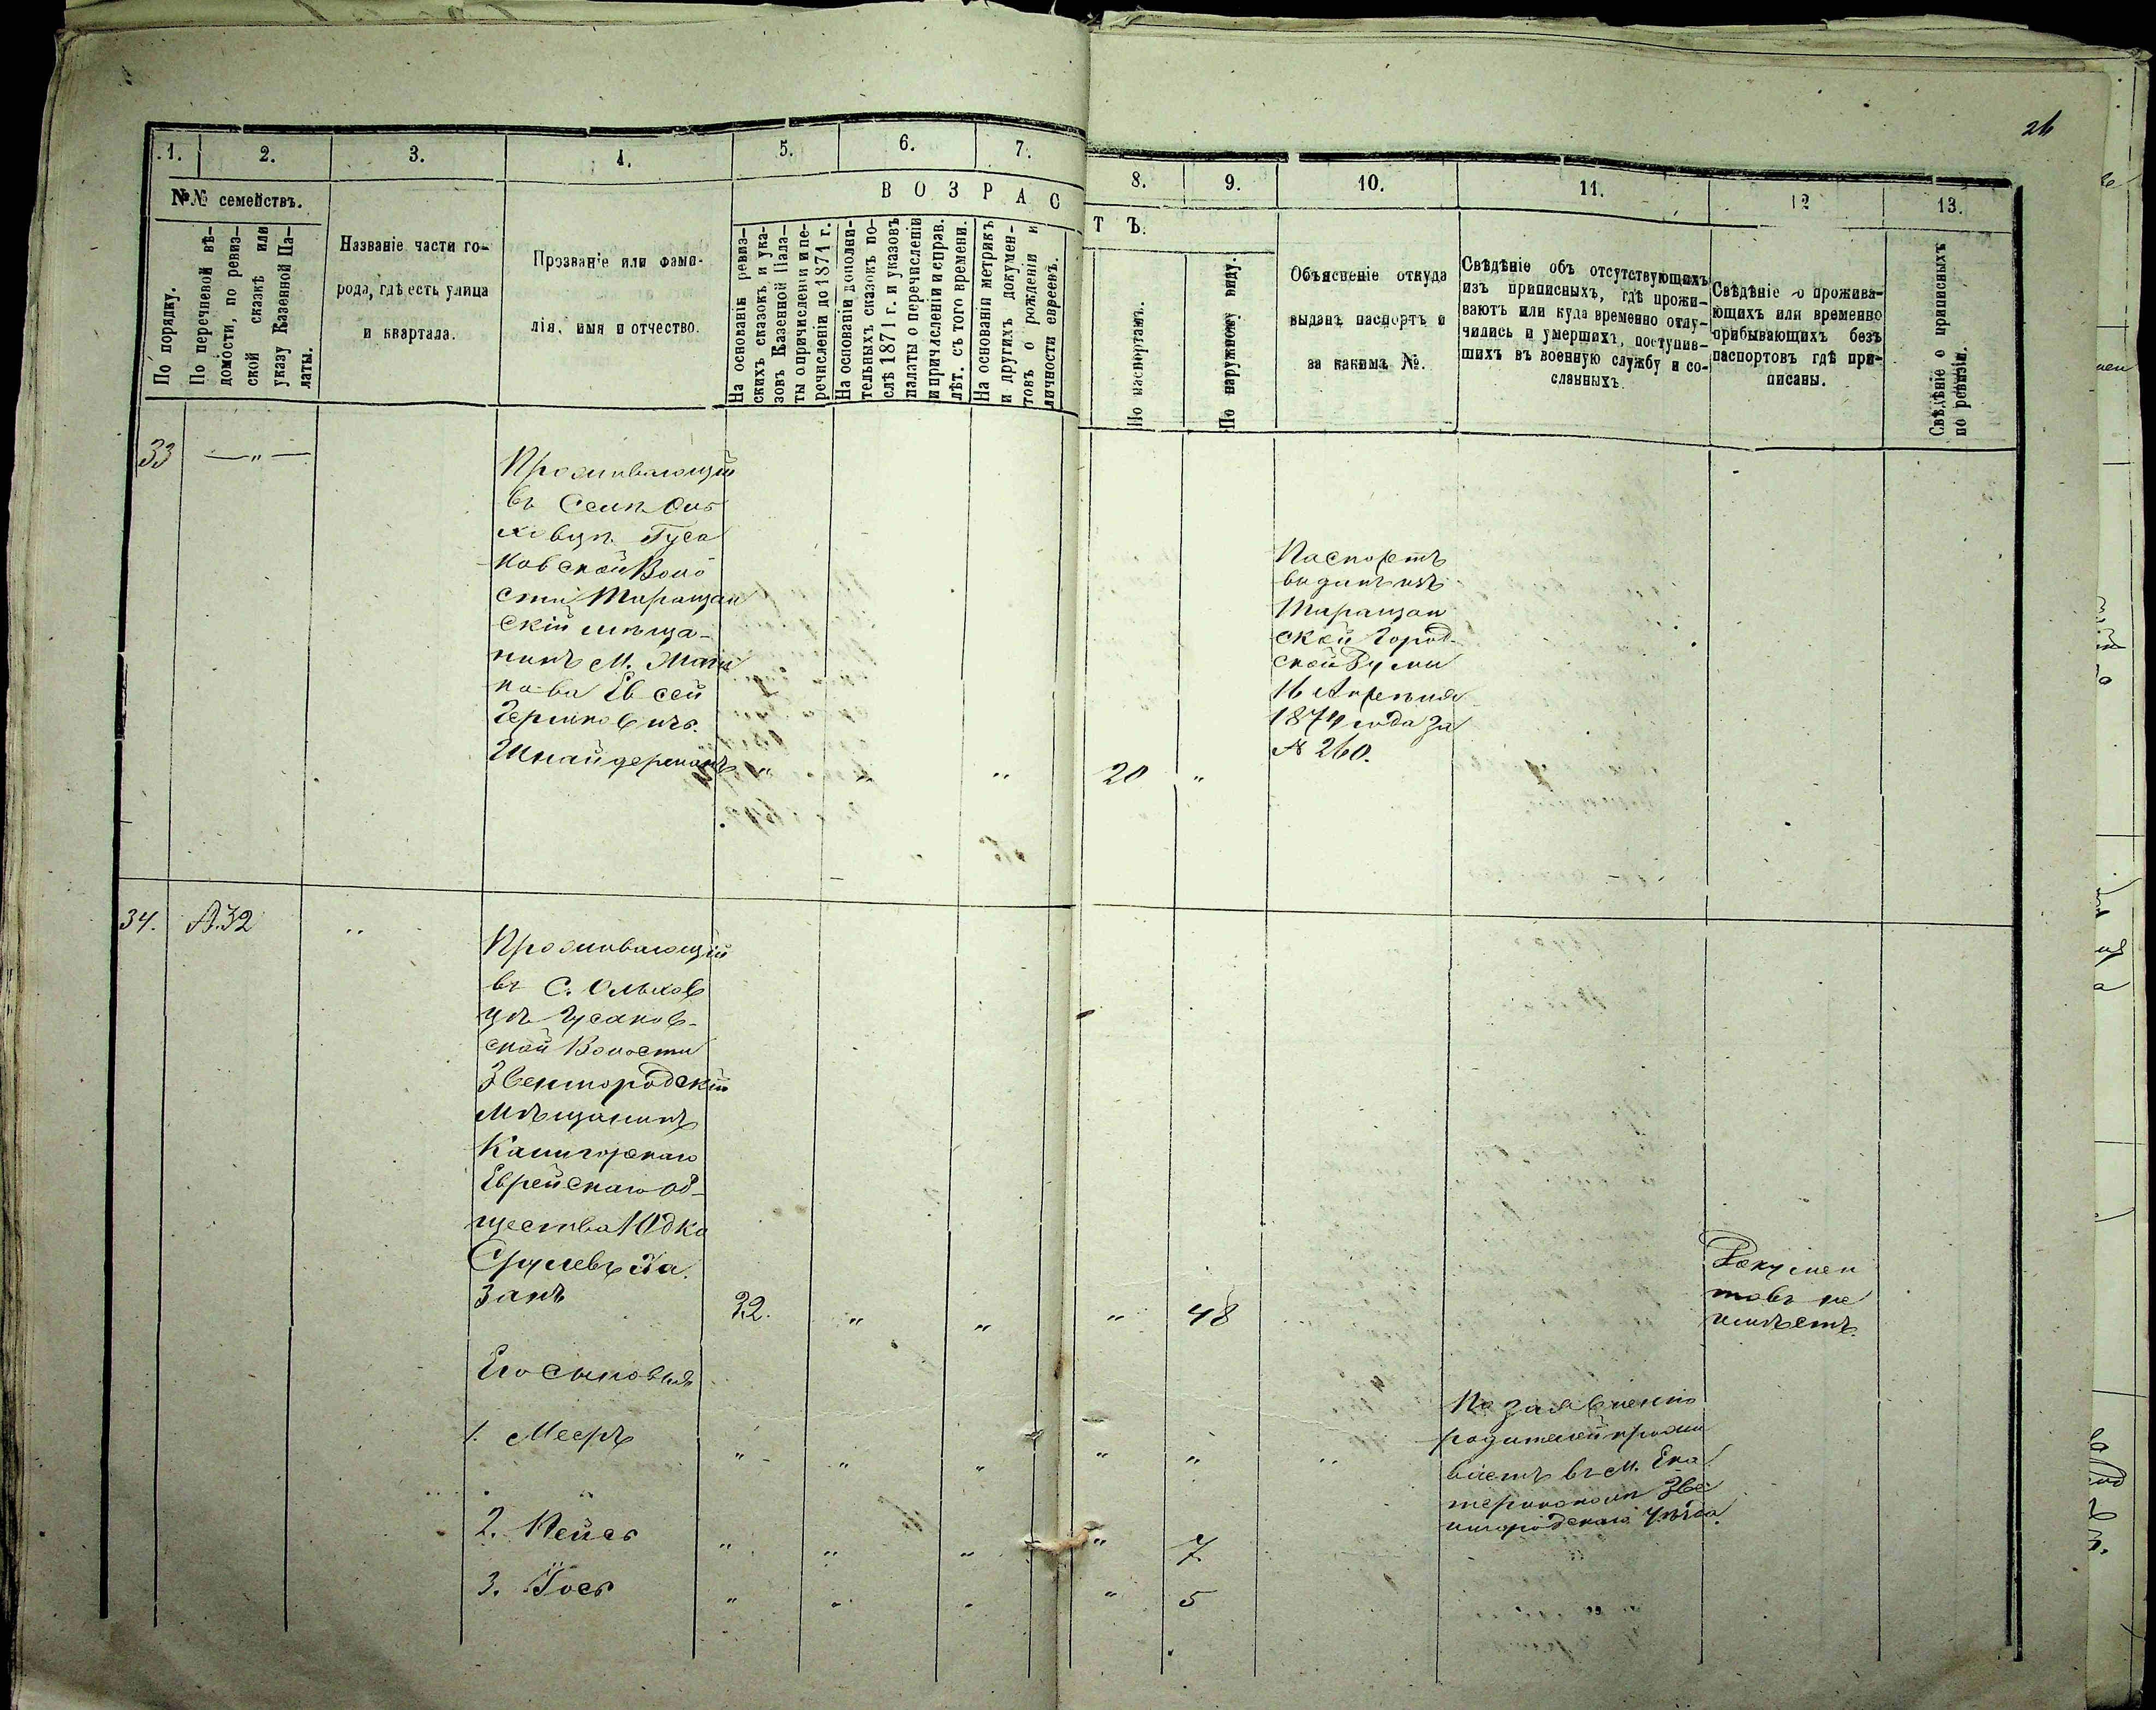 26
1.
2.
3.
4.
5.
6.
7.
8.
9.
10.
11.
12
13.
№№ семействъ.
По порядку.
По перечневой вѣ-
домости, по ревиз-
ской сказкѣ или
указу Казенной Па-
латы.
Названіе части го-
рода, гдѣ есть улица
и квартала.
Прозваніе или фами-
лія, имя и отчество.
ВОЗРАС
ТЪ.
На основаніи ревиз-
скихъ сказокъ и ука-
зовъ Казенной Пала-
ты о причисленіи и пе-
речисленіи до 1871 г.
На основаніи дополни-
тельныхъ сказокъ по-
слѣ 1871 г. и указовъ
палаты о перечисленіи
и причисленіи и справ.
лѣт. съ того времени.
На основаніи метрикъ
и другихъ докумен-
товъ о рожденіи и
личности евреевъ.
По паспортамъ.
По наружному виду.
Объясненіе откуда
выданъ паспортъ и
за какимъ №.
Свѣдѣніе объ отсутствующихъ
изъ приписныхъ, гдѣ прожи-
ваютъ или куда временно отлу-
чились и умершихъ, поступив-
шихъ въ военную службу и со-
сланныхъ
Свѣдѣніе о прожива-
ющихъ или временно
прибывающихъ безъ
паспортовъ гдѣ при-
писаны.
Свѣдѣніе о приписныхъ
по ревизіи.
33 — " —
Проживающій
въ Селѣ Оль
ховцѣ Гуса
ковской Воло
сти Таращан
скій мѣща-
нинъ М.
Евсей
Гершковичъ
Шнайдерманъ " " " 20 "
Паспортъ
виданъ изъ
Таращан
ской Город-
ской Думи
16 Апрѣля
1874 года за
№ 260.
34. №.32 "
Проживающій
въ С. Ольхов
цѣ Гусаков-
ской Волости
Звенигородскій
Мѣщанинъ
Калигорскаго
Еврейскаго Об-
щества Юдко
Срулевъ Ха
занъ 32. " " " 48
Докумен
товъ не
имѣетъ.
Его сыновья
1. Мееръ " " " " " "
По заявленію
родителей прожи
ваетъ въ М. Ека
теринополи Зве
нигородскаго Уѣзда.
2. Лейбъ " " " " 7.
3. Іось " " " " 5